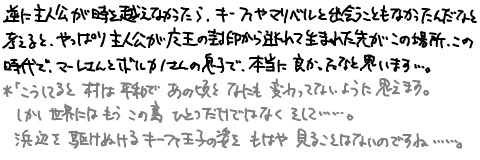 逆に主人公が時を越えなかったら、キーファやマリベルと出会うこともなかったんだなと
考えると、やっぱり主人公が魔王の封印から逃れて生まれた先がこの場所、この
時代で、マーレさんとボルカノさんの息子で、本当に良かったなと思います…。
*「こうしてると 村は平和で あの頃と なにも 変わってないように 思えます。
しかし 世界には もう この島 ひとつだけではなく そして……。
浜辺を 駆けぬける キーファ王子の姿を もはや 見ることはないのですね……。